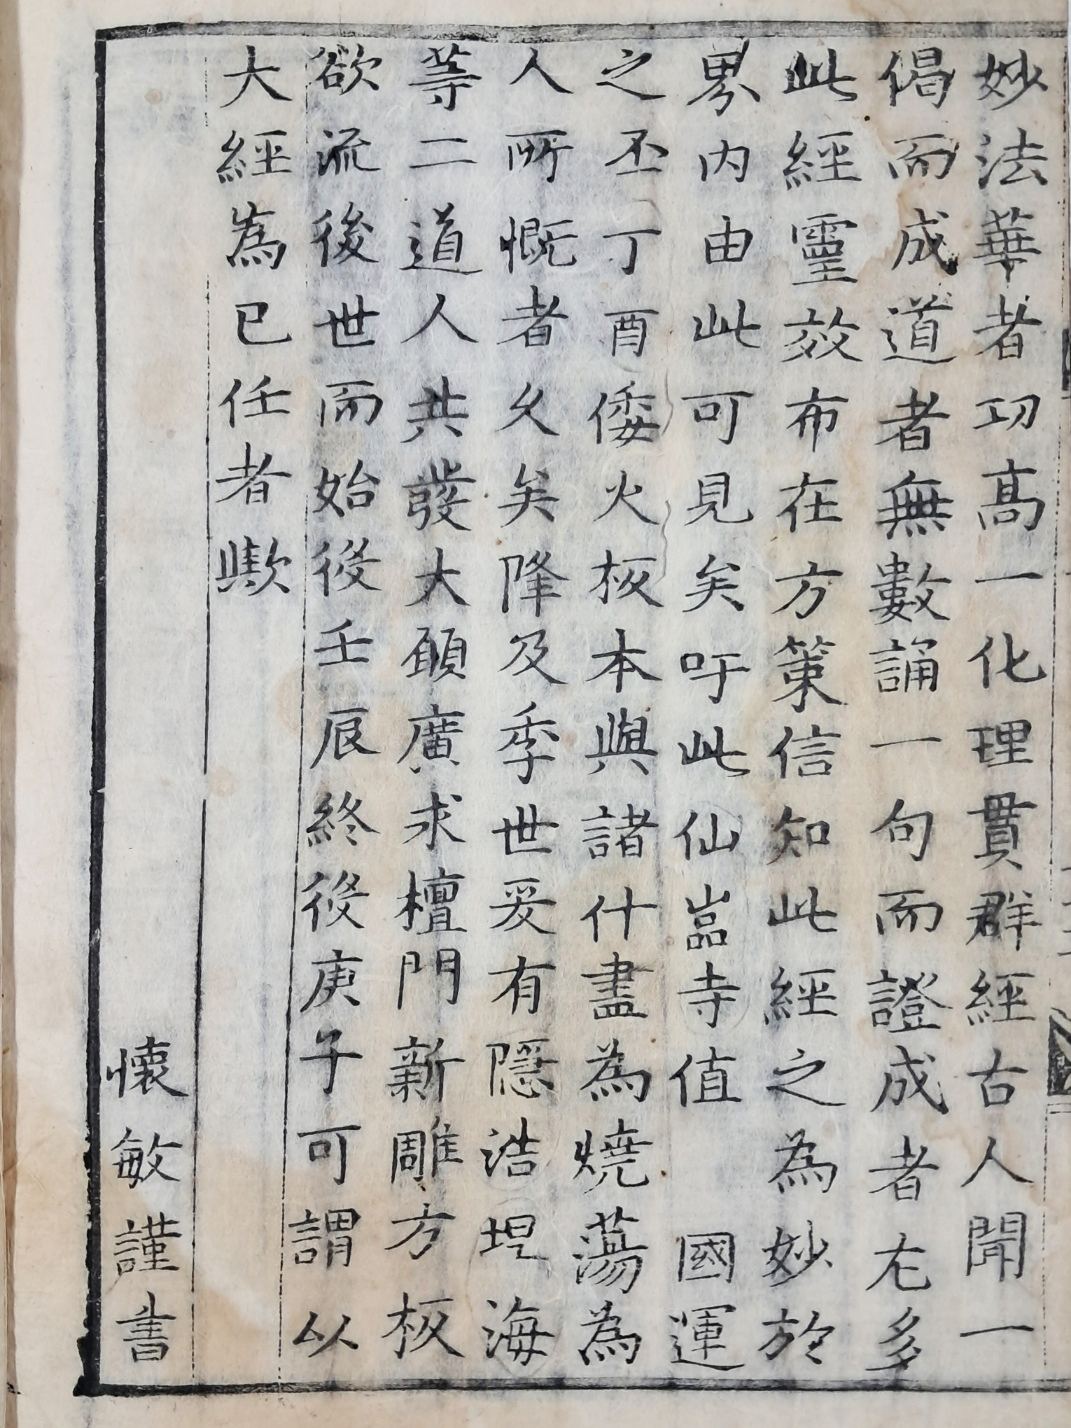 妙法華者功高一化理貫群經古人聞一
偈而成道者無數誦一句而證成者尤多
此經靈效布在方策信知此經之為妙於
界内由此可見矣吁此仙嵓寺值 國運
之丕丁酉倭火板本與諸什盡為燒蕩為
人所慨者久矣降及季世爰有隱浩坦海
等二道人共發大願廣求檀門新雕方板
欲流後世而始役壬辰終役庚子可謂以
大經為已任者歟
懷敏謹書